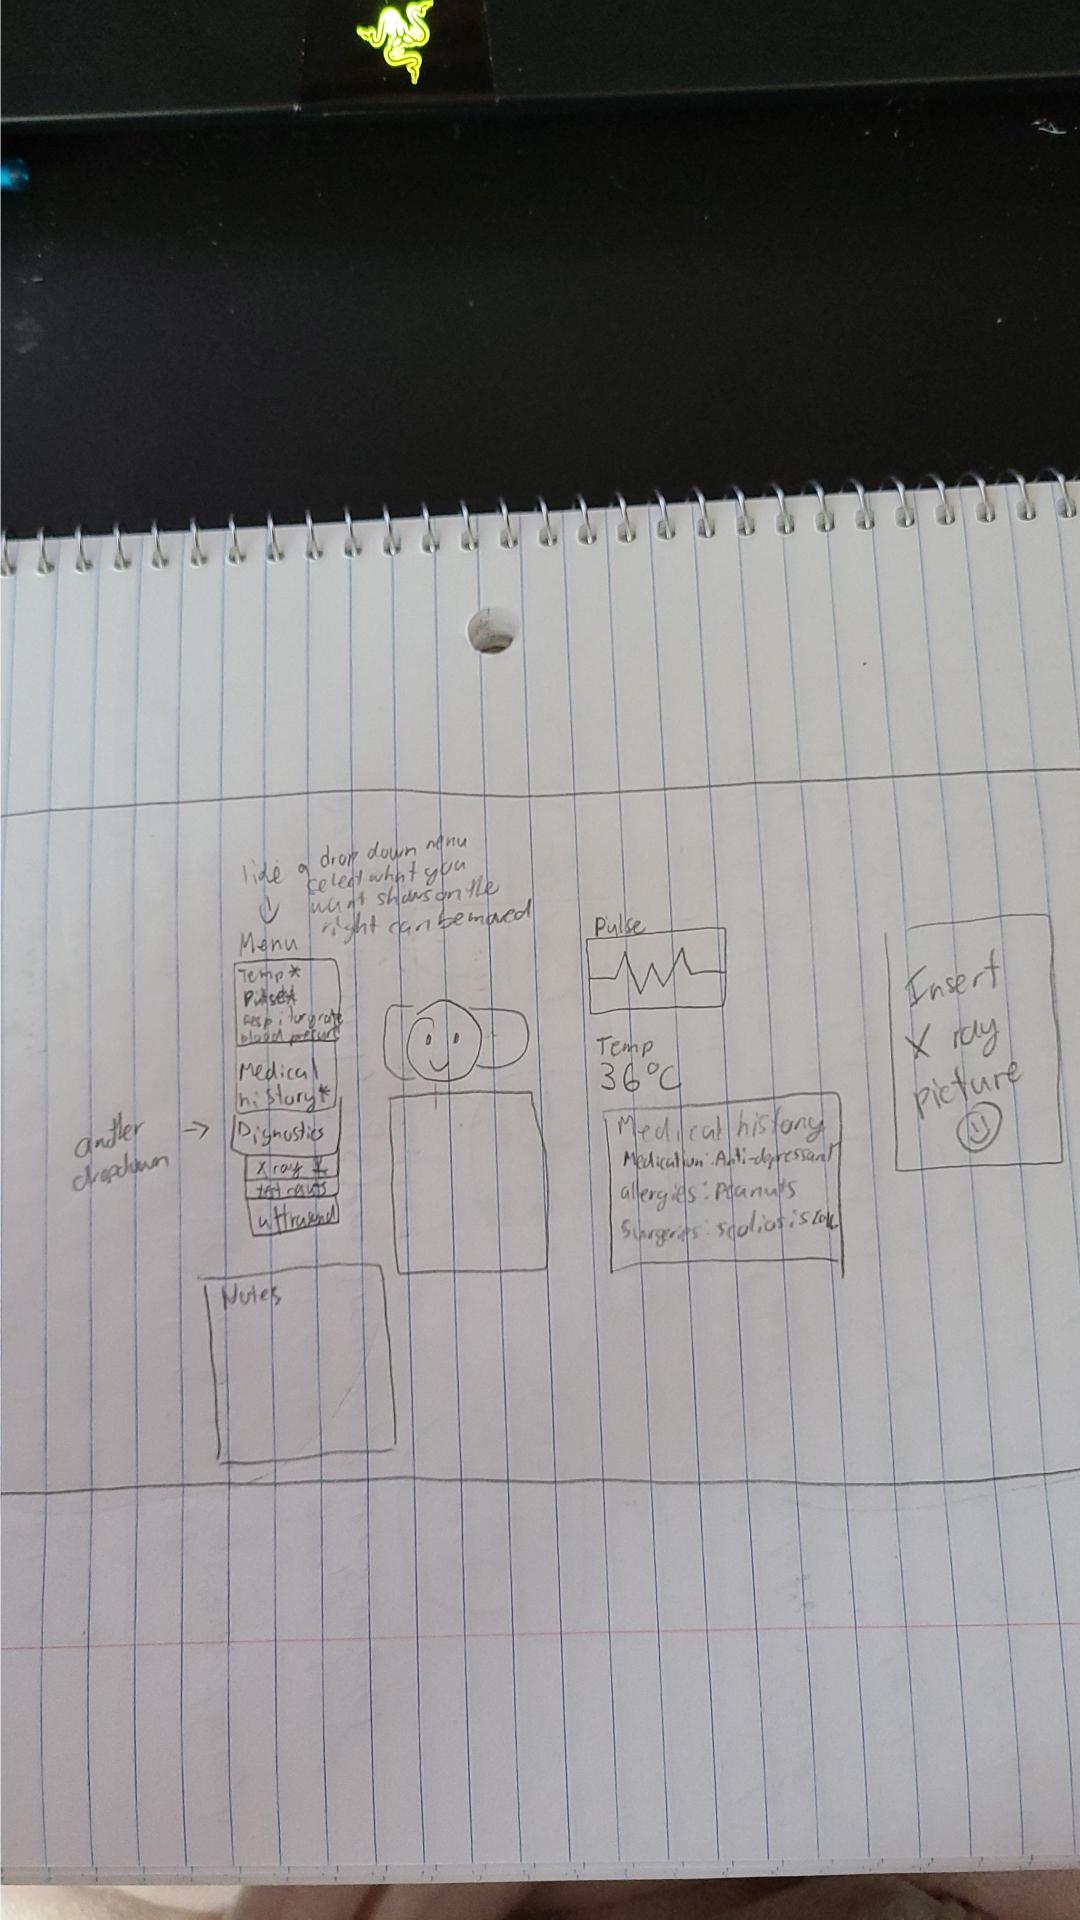 like a drop down menu
select what you
want shows on the
right can be moved
Menu
Temp*
Pulse*
Respitory rate
blood presure
Medical
history*
another
dropdown
Dignostics
x ray *
test
ultrasound
Notes
Pulse
Temp
36°C
Medical history
Medication: Anti-depressant
allergies: Peanuts
Surgeries: scoliosis
Insert
X ray
picture